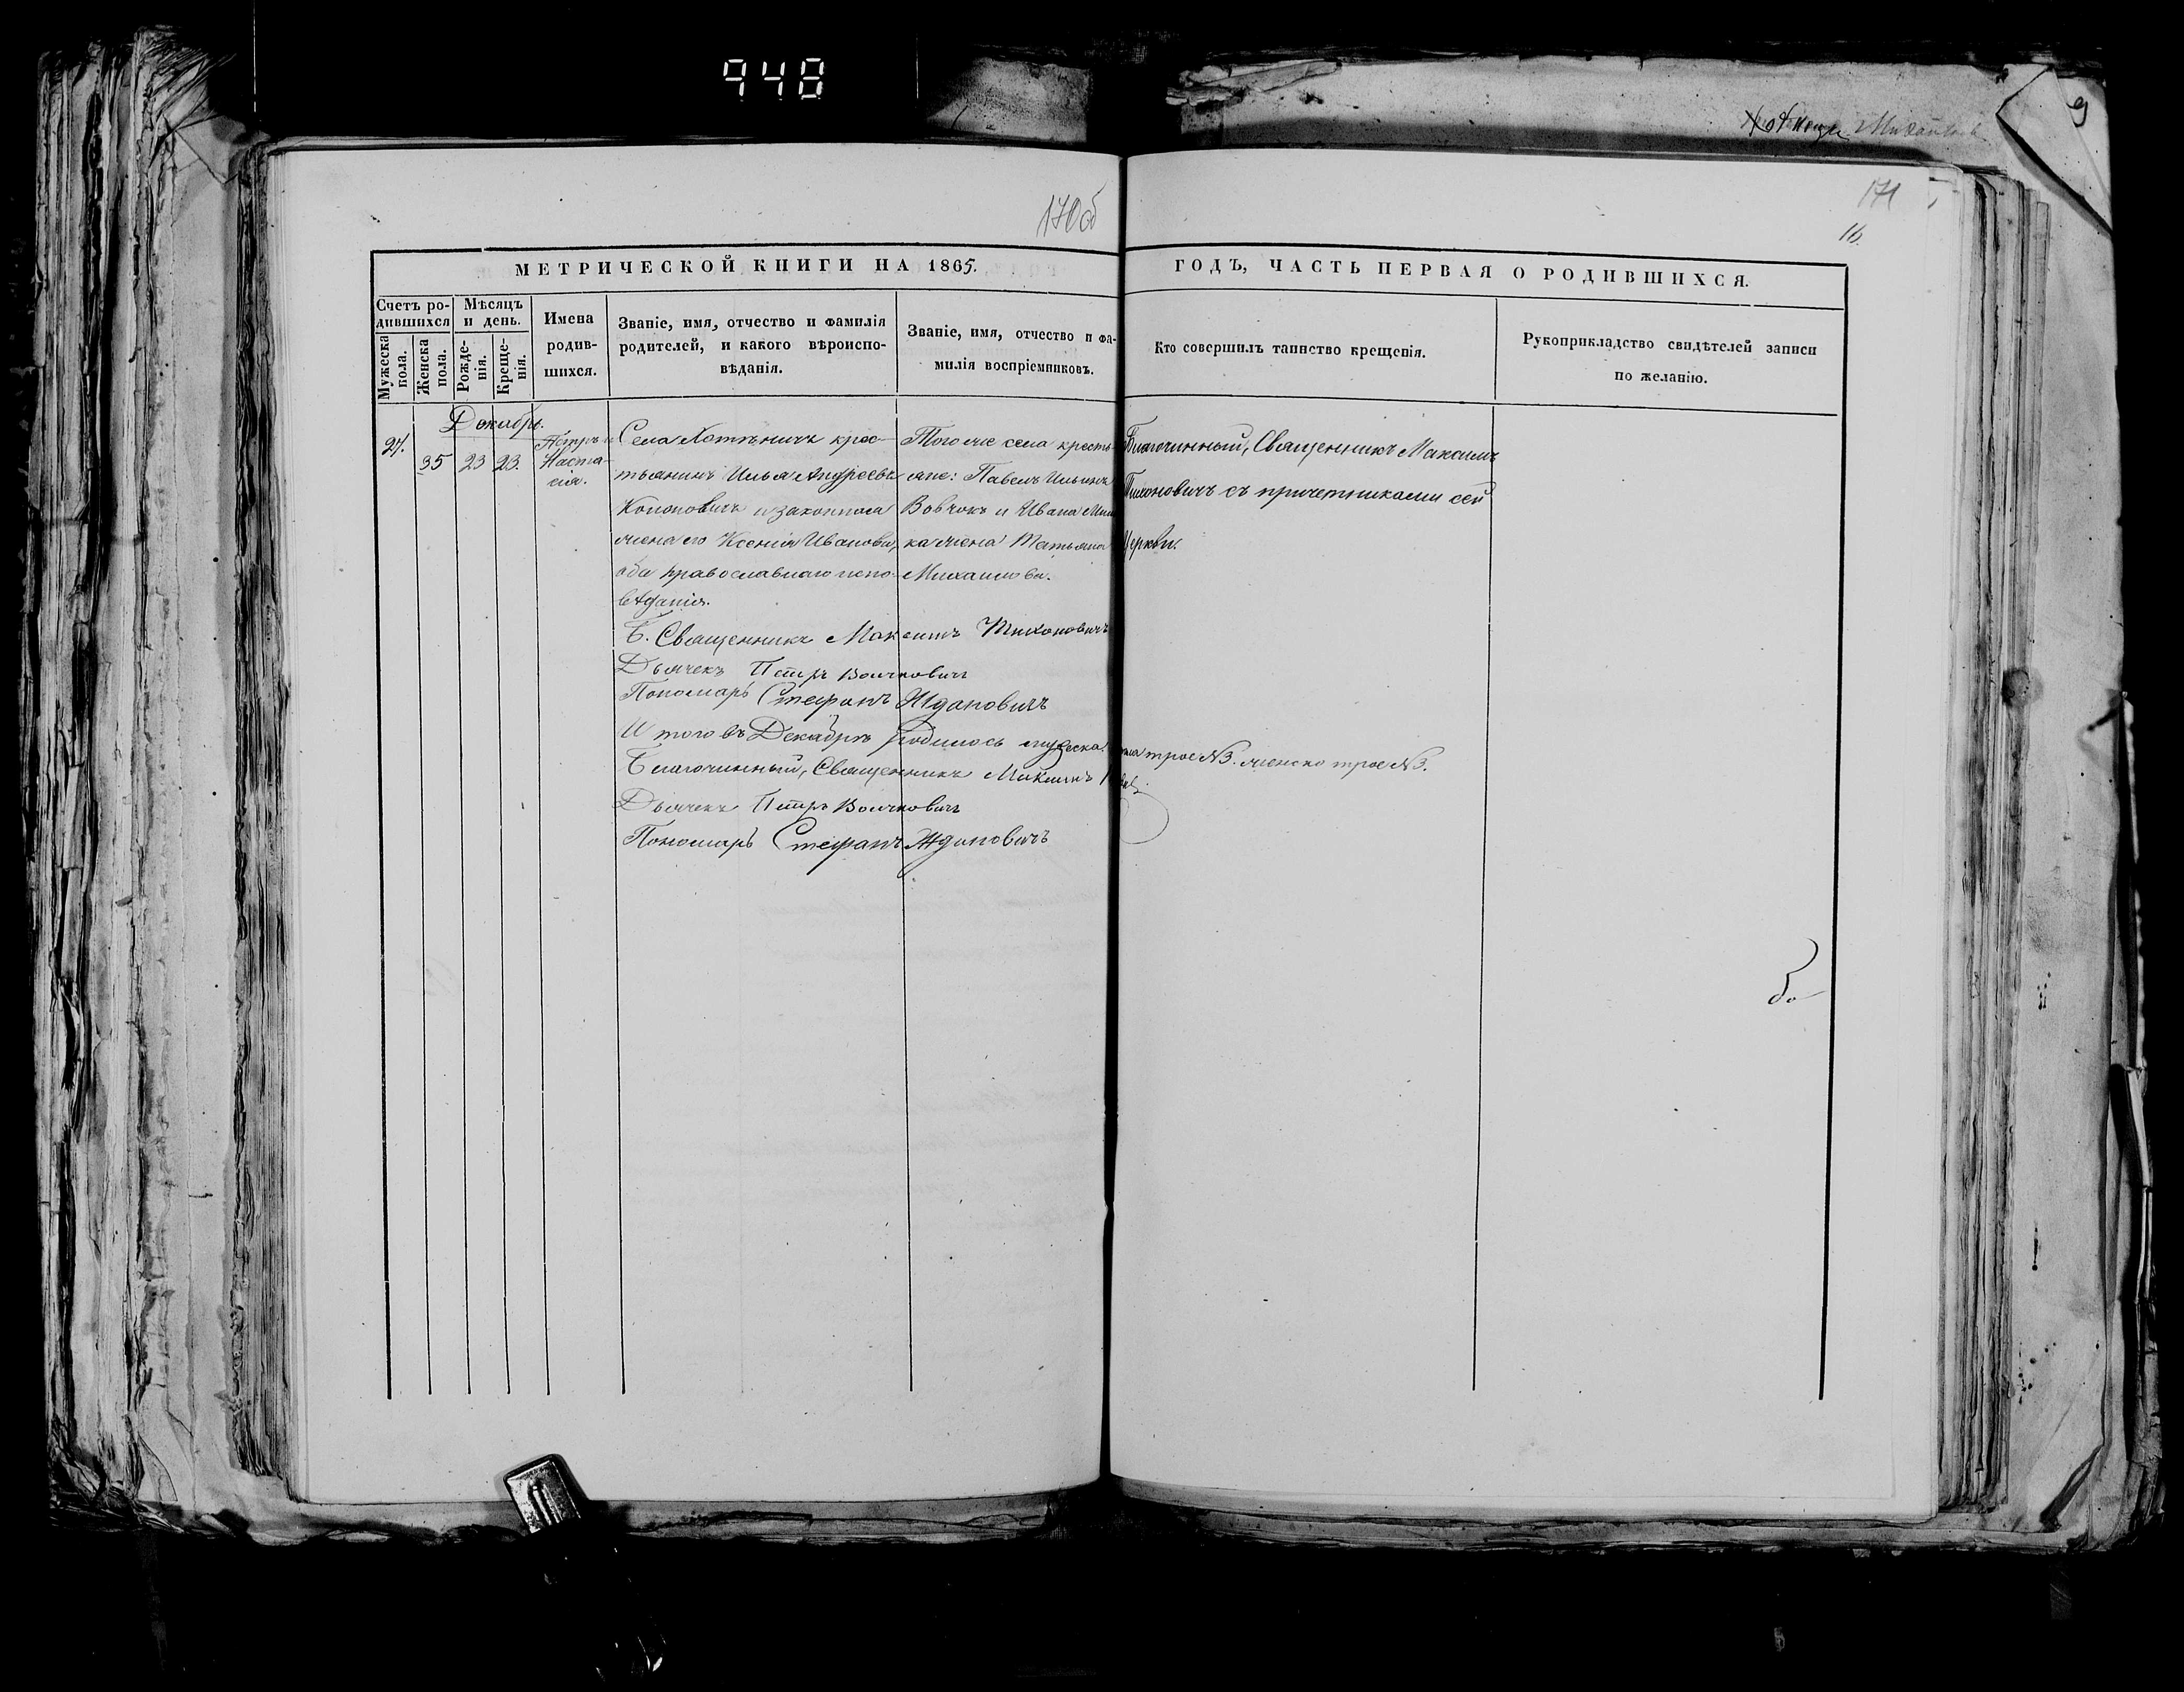 948
9
Хотеничи
170об
171
16.
МЕТРИЧЕСКОЙ КНИГИ НА 1865.
ГОДЪ, ЧАСТЬ ПЕРВАЯ О РОДИВШИХСЯ.
Счетъ ро-
дившихся
Мужеска
пола.
Женска
пола.
Мѣсяцъ
и день.
Рожде-
нія.
Креще-
нія.
Имена
родив-
шихся.
Званіе, имя, отчество и фамилія
родителей, и какого вѣроиспо-
вѣданія.
Званіе, имя, отчество и фа-
милія воспріемниковъ.
Кто совершилъ таинство крещенія.
Рукоприкладство свидѣтелей записи
по желанію.
Декабрь.
27.
35
23
23.
Петръ и
Наста-
сія.
Села Хотѣничъ крес-
тьянинъ Илья Андреевъ
Кононовичъ и законная
жена его Ксенія Иванова,
оба православнаго испо-
вѣданія.
Того же села кресть-
яне: Павелъ Ильинъ
Вовчокъ и Ивана
ка жена Татьяна
Михаилова.
Благочинный, Священникъ Максимъ
Тихоновичъ съ причетниками сей
Церкви.
Б. Священникъ Максимъ Тихоновичъ
Дьячекъ Петръ Волчковичъ
Пономарь Стефанъ Ждановичъ
И того въ Декабрѣ родилось мужеска пола трое №3. женска трое №3.
Благочинный, Священникъ Максимъ
Дьячекъ Петръ Волчковичъ
Пономарь Стефанъ Ждановичъ